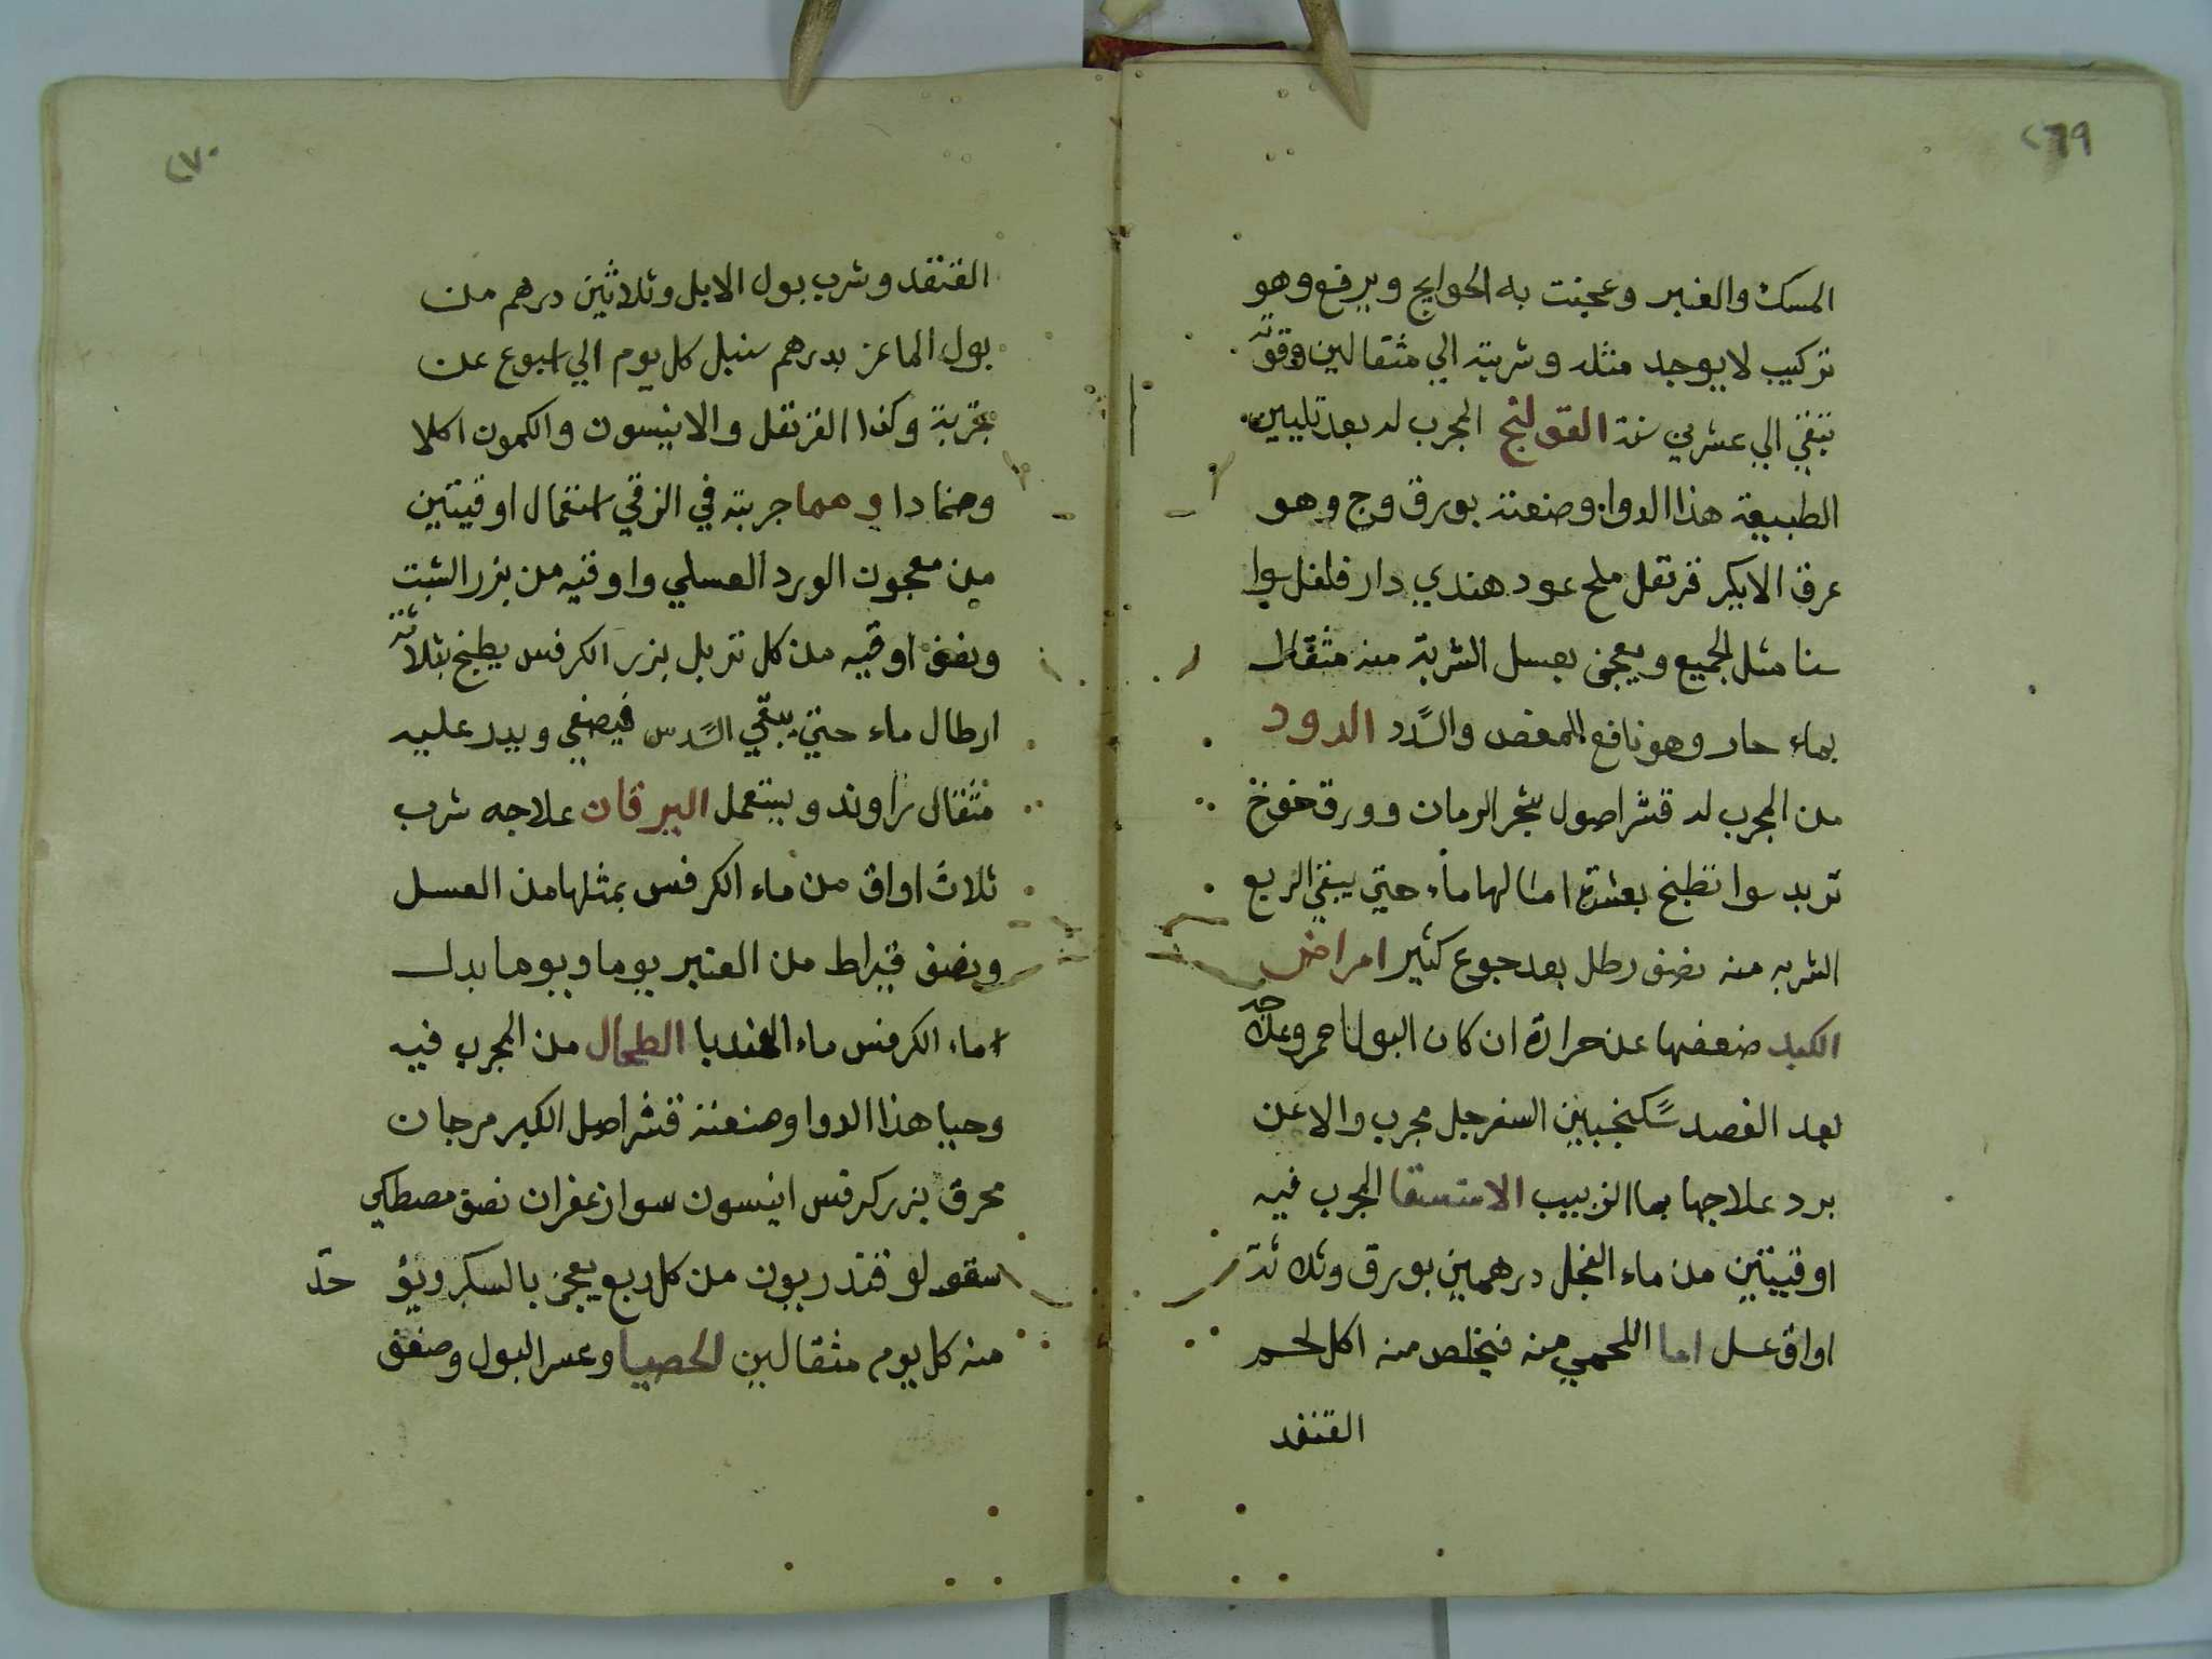 ٢٦٩
المسك والعنبر وعجنت به الحوايج ويرفع وهو
تركيب لا يوجد مثله وشربته الي مثقالين وقوته
تبقي الي عشرين سنة القولنج المجرب له بعد تليين
الطبيعة هذا الدوا وصنعته بورق وج وهو
عرق الايكر قرنقل ملح عود هندي دار فلفل سوا
سنا مثل الجميع ويعجن بعسل الشربة منه مثقال
بماء حار وهو نافع للمغص والسدد الدود
من المجرب له قشر اصول شجر الرمان وورق خوخ
تربد سوا تطبخ بعشرة امثالها ماء حتي يبقي الربع
الشربه منه نصف رطل بعد جوع كثير امراض
الكبد ضعفها عن حرارة ان كان البول احمر وعلاجه
بعد الفصد سكنجبين السفرجل مجرب والا عن
برد علاجها بما الزبيب الاستسقا المجرب فيه
اوقيتين من ماء الفجل درهمين بورق وثلاثة
اواق عسل اما اللحمي منه فيخلص منه اكل لحم
القنفد
٢٧٠
القنفد وشرب بول الابل وثلاثين درهم من
بول الماعز بدرهم سنبل كل يوم الي اسبوع عن
تجربة وكذا القرنفل والانيسون والكمون اكلا
وضمادا ومما جربته في الزقي استعمال اوقيتين
من معجون الورد العسلي واوقيه من بزر الشبت
ونصف اوقيه من كل تربل بزر الكرفس يطبخ بثلاثة
ارطال ماء حتي يبقي السدس فيصفي ويبدر عليه
مثقال راوند ويستعمل اليرقان علاجه شرب
ثلاث اواق من ماء الكرفس بمثلها من العسل
ونصف قيراط من العنبر يوما ويوما بدل
ماء الكرفس ماء الهندبا الطحال من المجرب فيه
وحيا هذا الدوا وصنعته قشر اصل الكبر مرجان
محرق بزر كرفس انيسون سوا زعفران نصف مصطكي
اسقولو قندريون من كل ربع يعجن بالسكر ويؤخذ
منه كل يوم مثقالين الحصبا وعسر البول وضعف